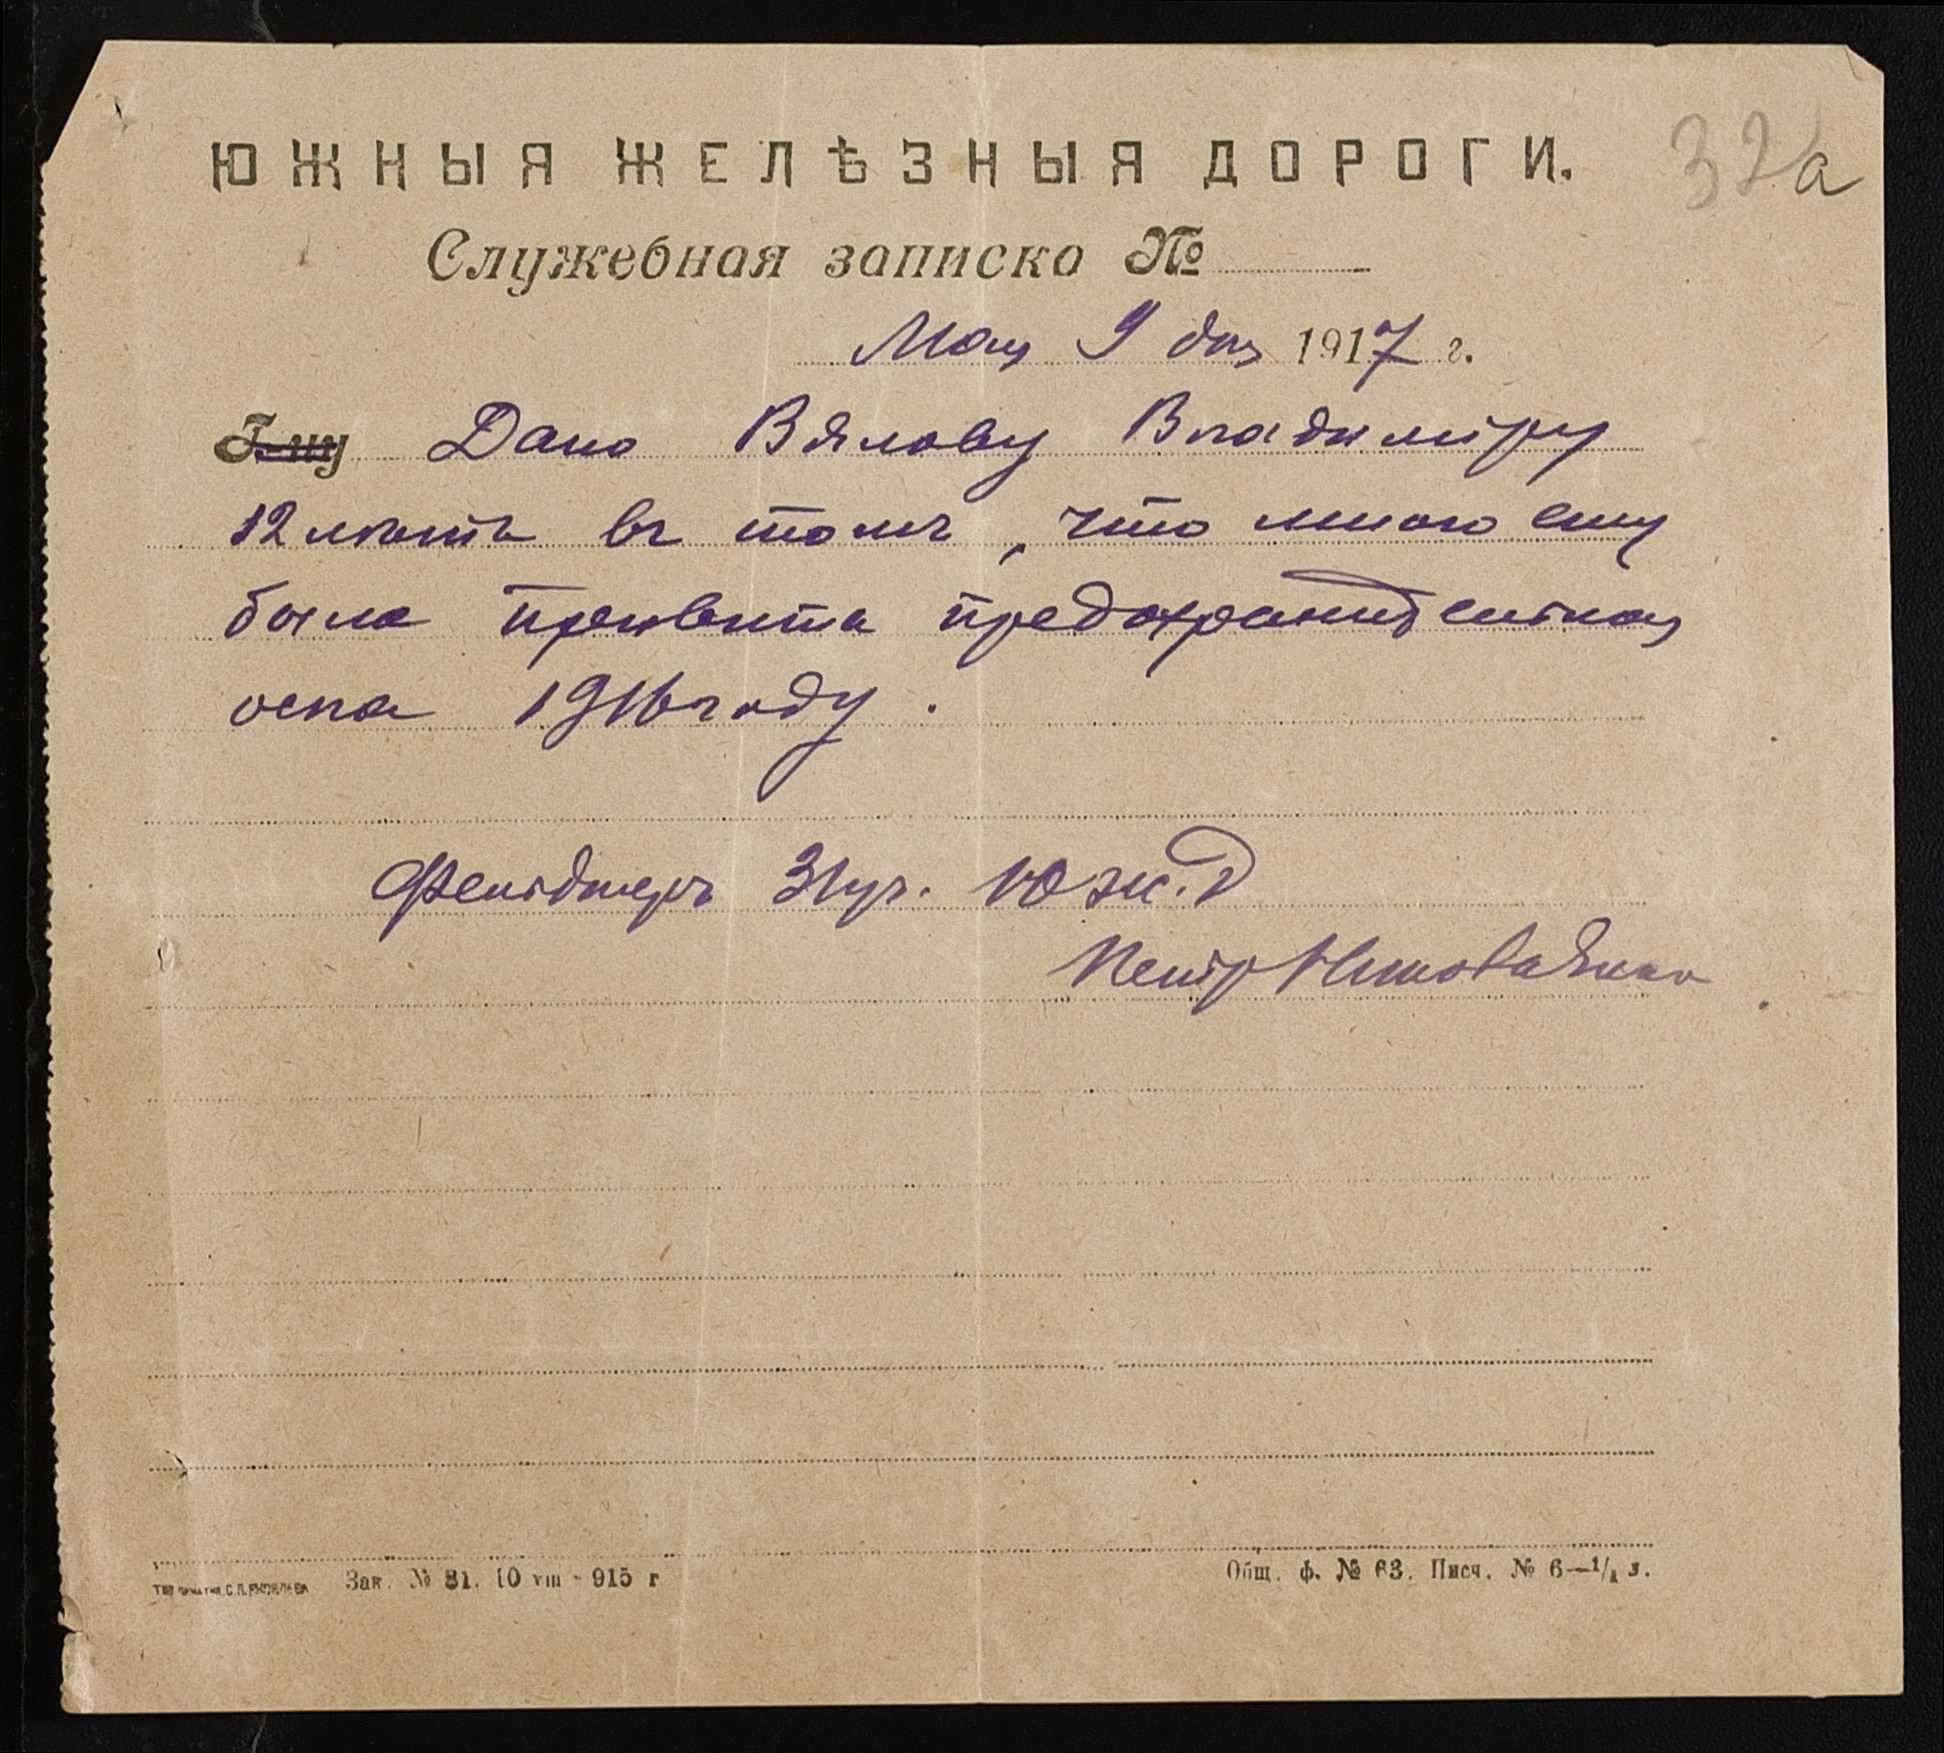 32а
ЮЖНЫЯ ЖЕЛѢЗНЫЯ ДОРОГИ.
Служебная записка №
Мая 9 дня 1917 г.
Г-ну Дано Вялову Владиміру
12 лѣтъ въ томъ, что мною ему
была привита предохранительная
оспа 1916 году.
Фельдшеръ 31 уч. Юж. д
Петр
Зак. № 81. 10 VIII - 915 г
Общ. ф. № 63. Писч. № 6—